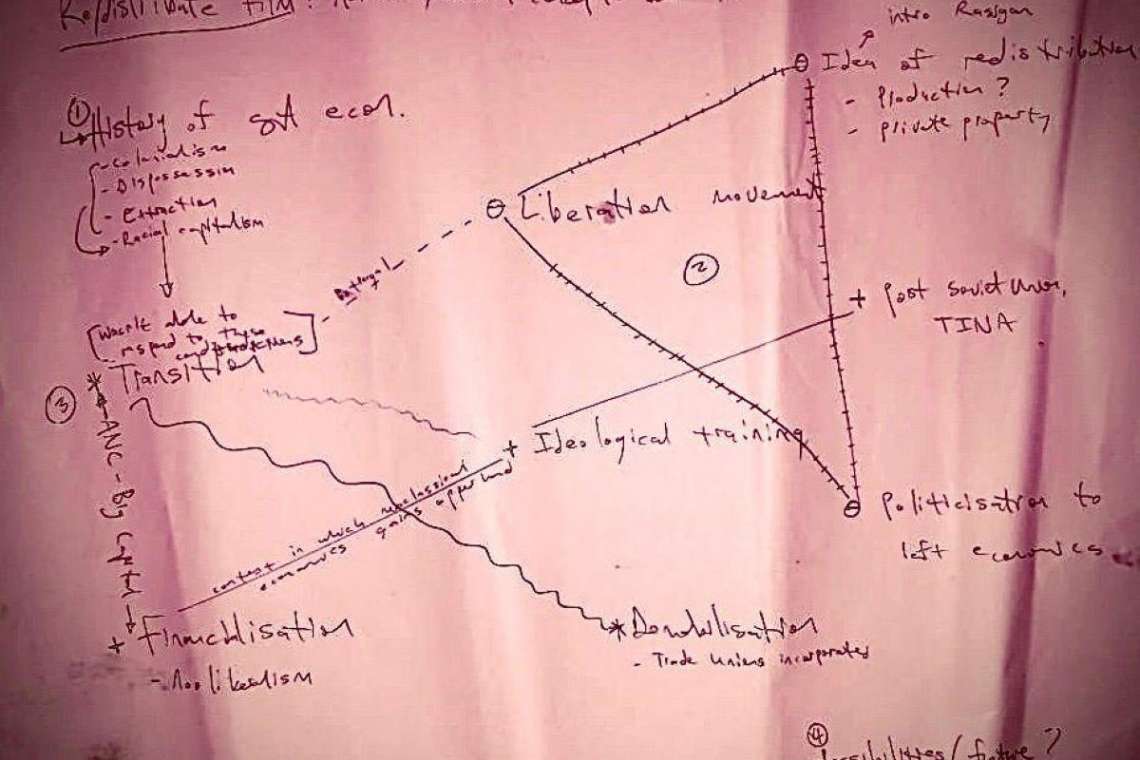 Re/distribute film:
intro Rasigan
Idea of redistribution
- Production?
- private property
①
History of SA econ.
- Colonialism
- Dispossession
- Extraction
- Racial capitalism
Liberation movement
②
Betrayal
+ Post Soviet Union,
TINA
[wasn't able to
respond to these
contradictions]
③ * Transition
ANC - Big Capital
+ Ideological training
context in which neoclassical
economics gains upperhand
Politicisation to
left economics
+ Financialisation
- Neoliberalism
* Demobilisation
- Trade Unions incorporated
④
Possibilities/future?